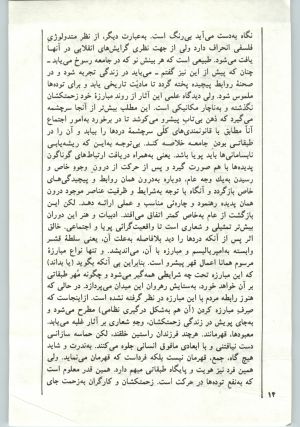 نگاه به‌دست می‌آید بی‌رنگ است. به‌عبارت دیگر، از نظر متدولوژی
فلسفی انحراف دارد ولی از جهت نظری گرایش‌های انقلابی در آنها
یافت می‌شود. طبیعی است که هر بینش نو که در جامعه رسوخ می‌یابد ـ
چنان که پیش از این نیز گفتم ـ می‌باید در زندگی تجربه شود و در
صحنهٔ روابط پیچیده پخته گردد تا مادیّت تاریخی یابد و برای او
ملموس شود. ولی دیدگاه علمی این آثار از روند مبارزهٔ خود زحمتکشان
نگذشته و به‌ناچار مکانیکی است. این مطلب بیش‌تر از آنجا سرچشمه
می‌گیرد که ذهن بی‌تاب پیشرو می‌کوشد تا در برخورد به‌امور اجتماع
آناً مطابق با قانونمندی‌های کلّی سرچشمهٔ دردها را بیابد و آن را در
طبقاتی بودن جامعه خلاصه کند. بی‌توجه به‌این که ریشه‌یابی
نابسامانی‌ها باید پویا باشد. یعنی به‌همراه دریافت ارتباط‌های گوناگون
پدیده‌ها با هم صورت گیرد و پس از حرکت از درون وجوه خاص و
رسیدن به‌یك وجه عام، دوباره به‌درون همان روابط و پیچیدگی‌های
خاص بازگردد و آنگاه با توجه به‌شرایط و ظرفیت عناصر موجود درون
همان پدیده رهنمود و چاره‌ئی مناسب و عملی ارائه دهد. لکن این
بازگشت از عام به‌خاص کمتر اتفاق می‌افتد. ادبیات و هنر این دوران
بیش‌تر تمثیلی و شعاری است تا واقعیت‌گرائی پویا و اجتماعی. خالق
اثر پس از آنکه دردها را دید بلافاصله به‌علت آن، یعنی سلطهٔ قشر
وابسته به‌امپریالیسم و مبارزه با آن، می‌اندیشد. و تنها نوع مبارزهٔ
مرسوم همانا اعمال قهر پیشرو است. بنابراین بی آنکه بگوید (یا بداند)
که این مبارزه تحت چه شرایطی همه‌گیر می‌شود و چگونه مُهر طبقاتی
بر آن خواهد خورد، به‌ستایش رهروان این میدان می‌پردازد. در حالی که
هنوز رابطه مردم با این مبارزه در نظر گرفته نشده است. ازاینجاست که
صِرف مبارزه کردن (آن هم به‌شکل درگیری نظامی) مطرح می‌شود و
به‌جای پویش در زندگی زحمتکشان، وجه شعاری بر آثار غلبه می‌یابد.
معبودها، قهرمانند. هرچند فرزندان راستین خلقند. لکن حماسه سازانی
دست نیافتنی و با ابعادی مافوق انسانی جلوه می‌کنند. به‌ندرت و شاید
هیچ گاه، جمع، قهرمان نیست بلکه فرداست که قهرمان می‌نماید. ولی
همین فرد نیز هویت و پایگاه طبقاتی مبهم دارد. همین قدر معلوم است
که به‌نفع توده‌ها در حرکت است. زحمتکشان و کارگران به‌زحمت جای
۱۴